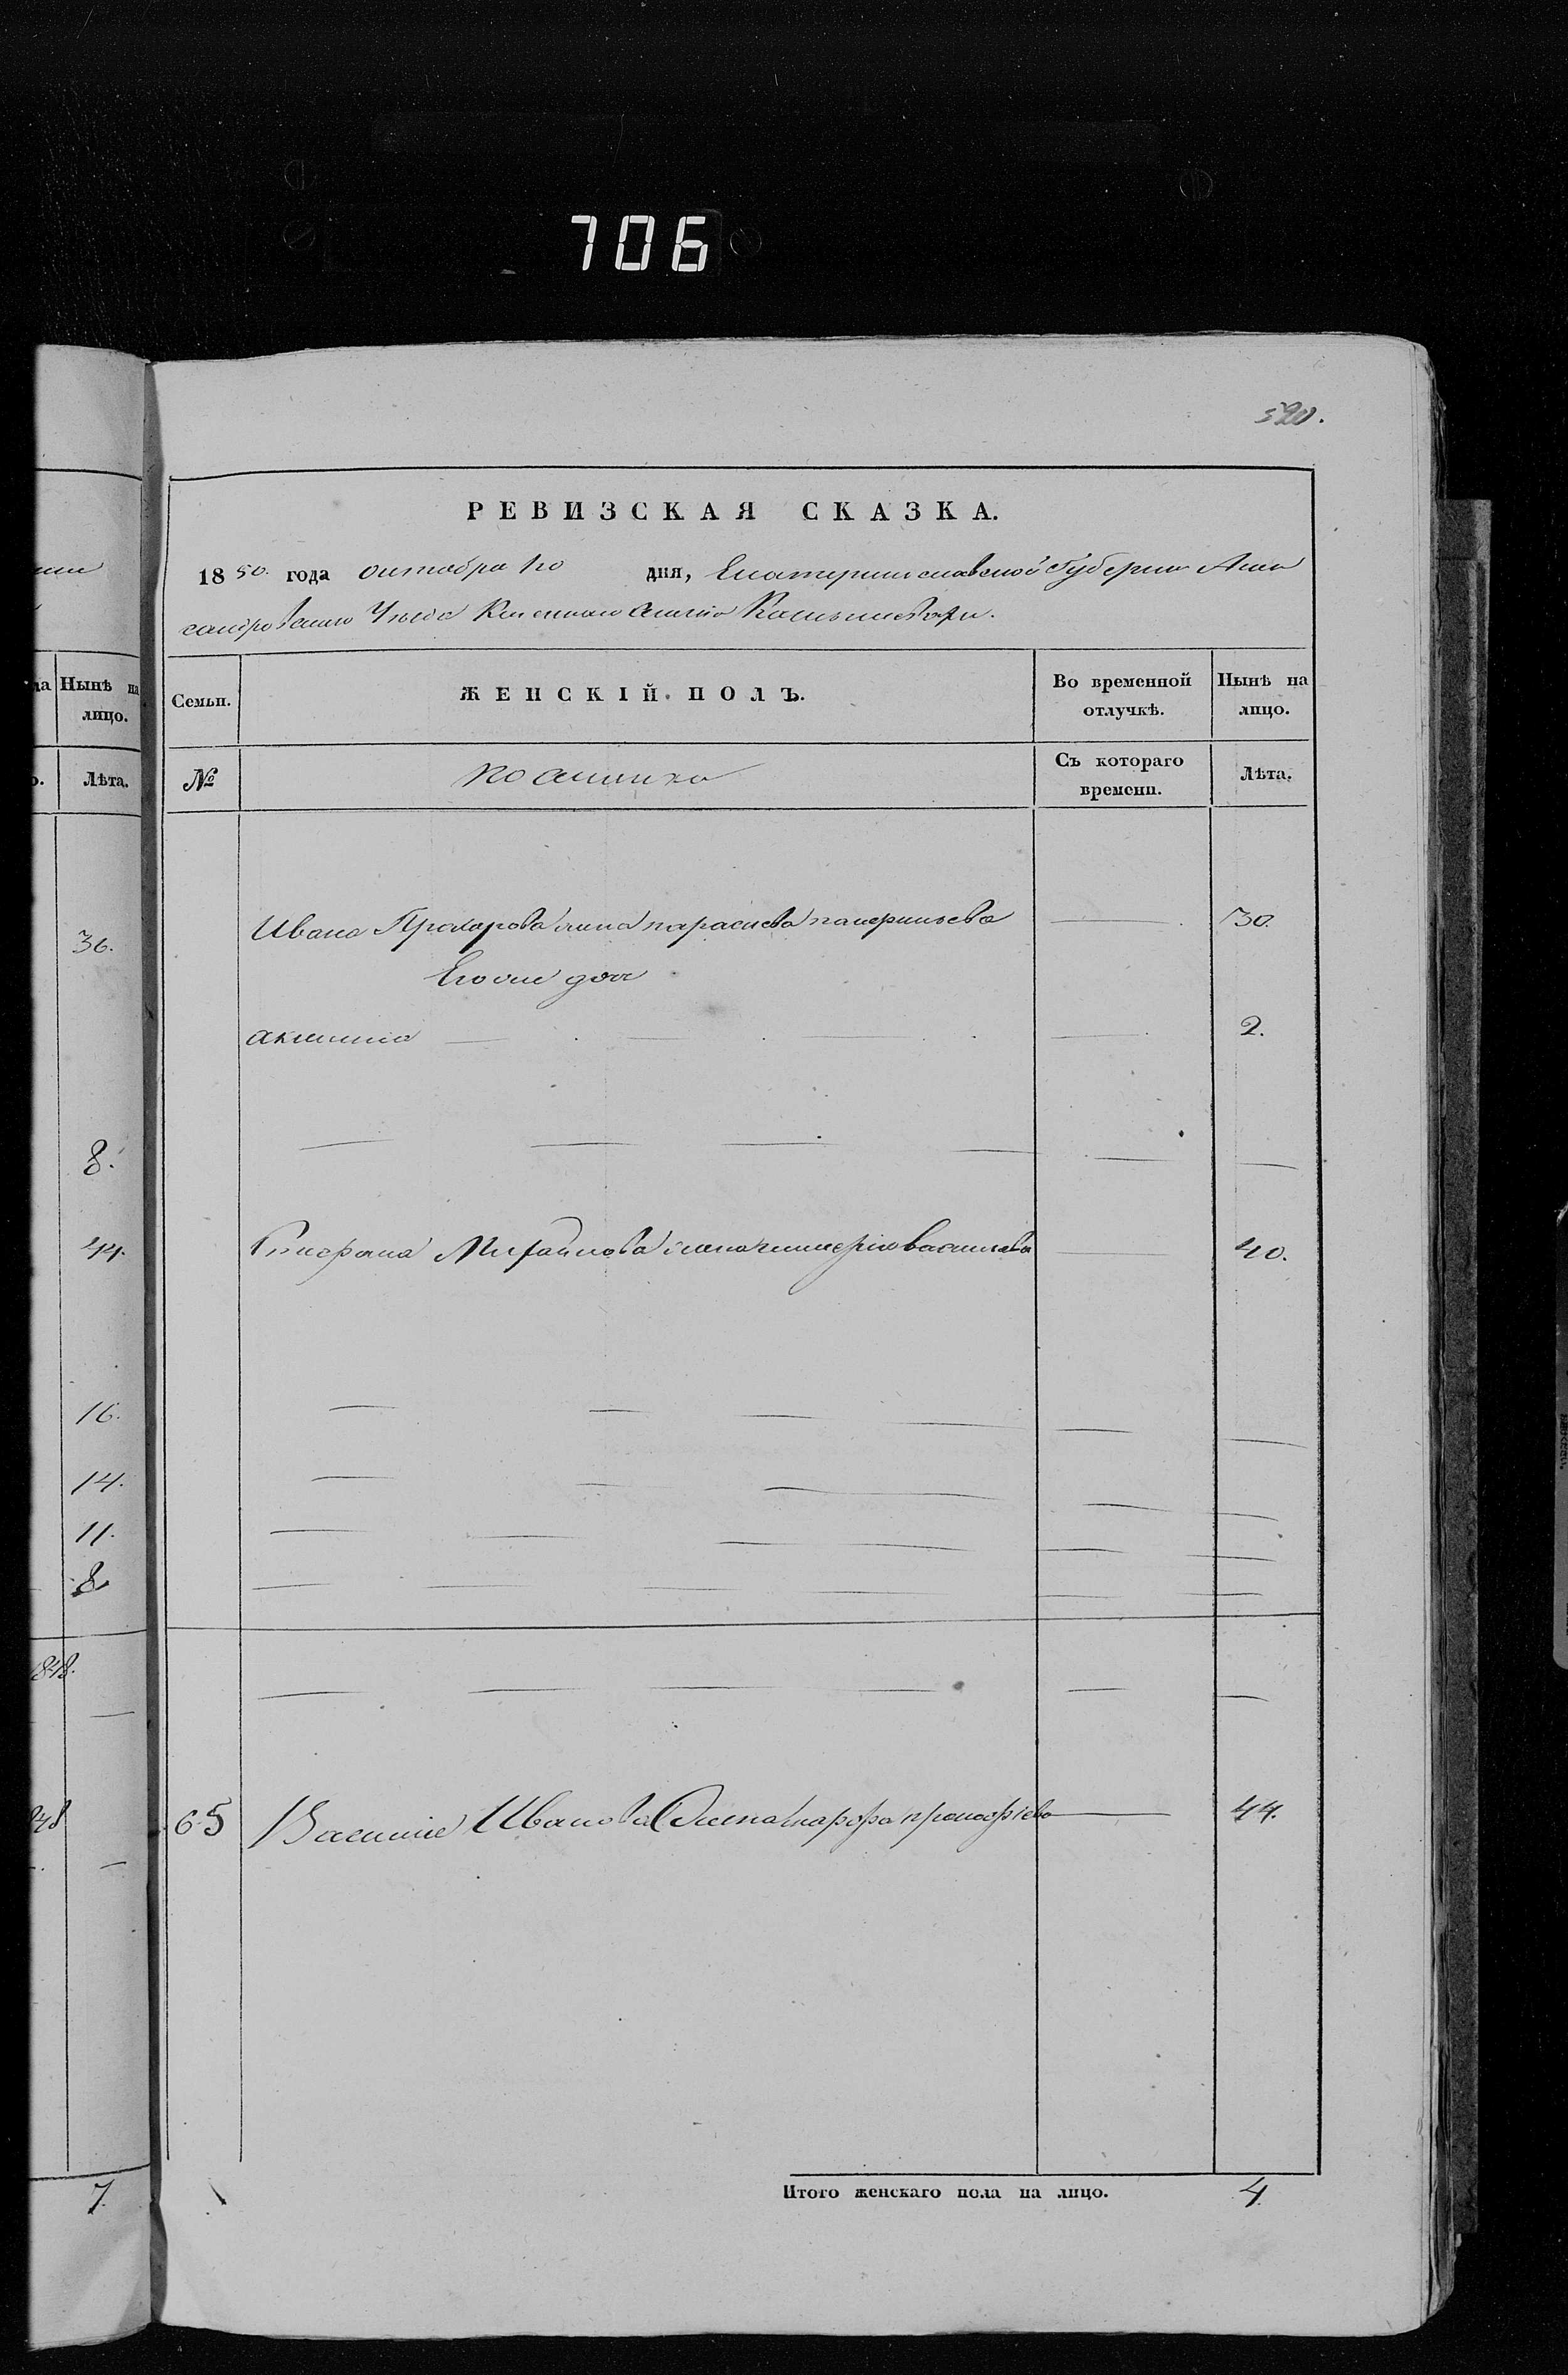 706
520.
РЕВИЗСКАЯ СКАЗКА.
1850 года октобра 20 дня, Екатеринославской Губернии Алек
сандровскаго Уѣзда Казеннаго Селенія
Семьи.
ЖЕНСКІЙ ПОЛЪ.
Во временной отлучкѣ.
Нынѣ на лицо.
№
Съ котораго времени.
Лѣта.
Ивана Прохарова жена параскева 30.
Его дочь
акилина 2.
Стефана Михайлова жена гликерія василева 40.
65 Василия Иванова жена марфа 44.
Итого женскаго пола на лицо. 4
Нынѣ на лицо.
Лѣта.
36.
8.
44.
16.
14.
11.
8
1848.
7.